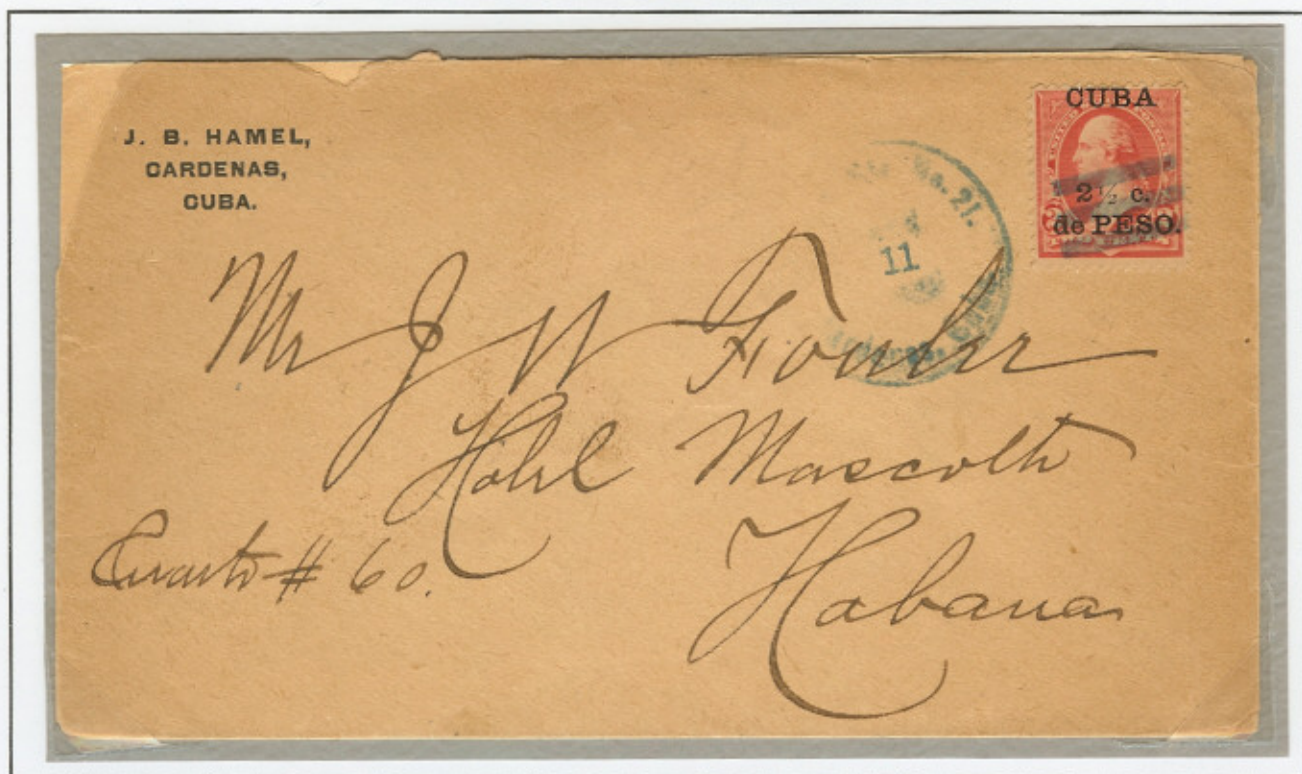 J. B. HAMEL,
CARDENAS,
CUBA.
CUBA
2½ c.
de PESO.
No. 21.
11
Mr J W Fowler
Hotel Mascotte
Cuarto # 60.
Habana